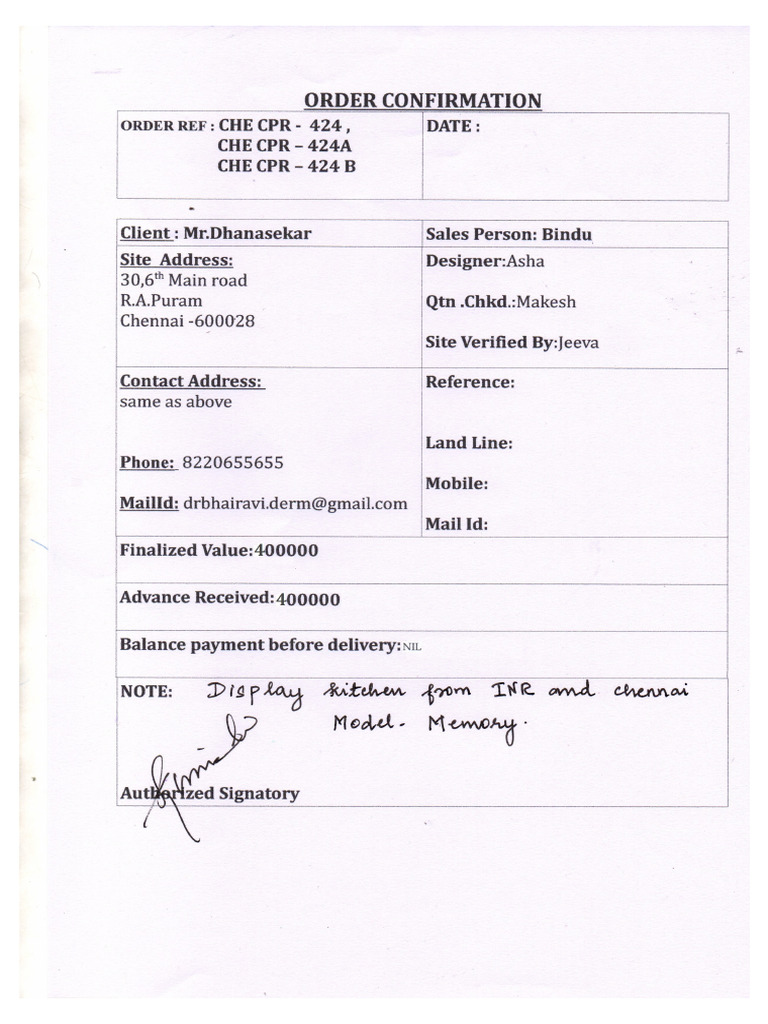 ORDER CONFIRMATION
ORDER REF : CHE CPR - 424 ,
CHE CPR – 424A
CHE CPR – 424 B
DATE :
Client : Mr.Dhanasekar
Sales Person: Bindu
Site Address:
30,6th Main road
R.A.Puram
Chennai -600028
Designer:Asha
Qtn .Chkd.:Makesh
Site Verified By:Jeeva
Contact Address:
same as above
Phone: 8220655655
MailId: drbhairavi.derm@gmail.com
Reference:
Land Line:
Mobile:
Mail Id:
Finalized Value:400000
Advance Received:400000
Balance payment before delivery:NIL
NOTE: Display kitchen from INR and chennai
Model - Memory.
Authorized Signatory